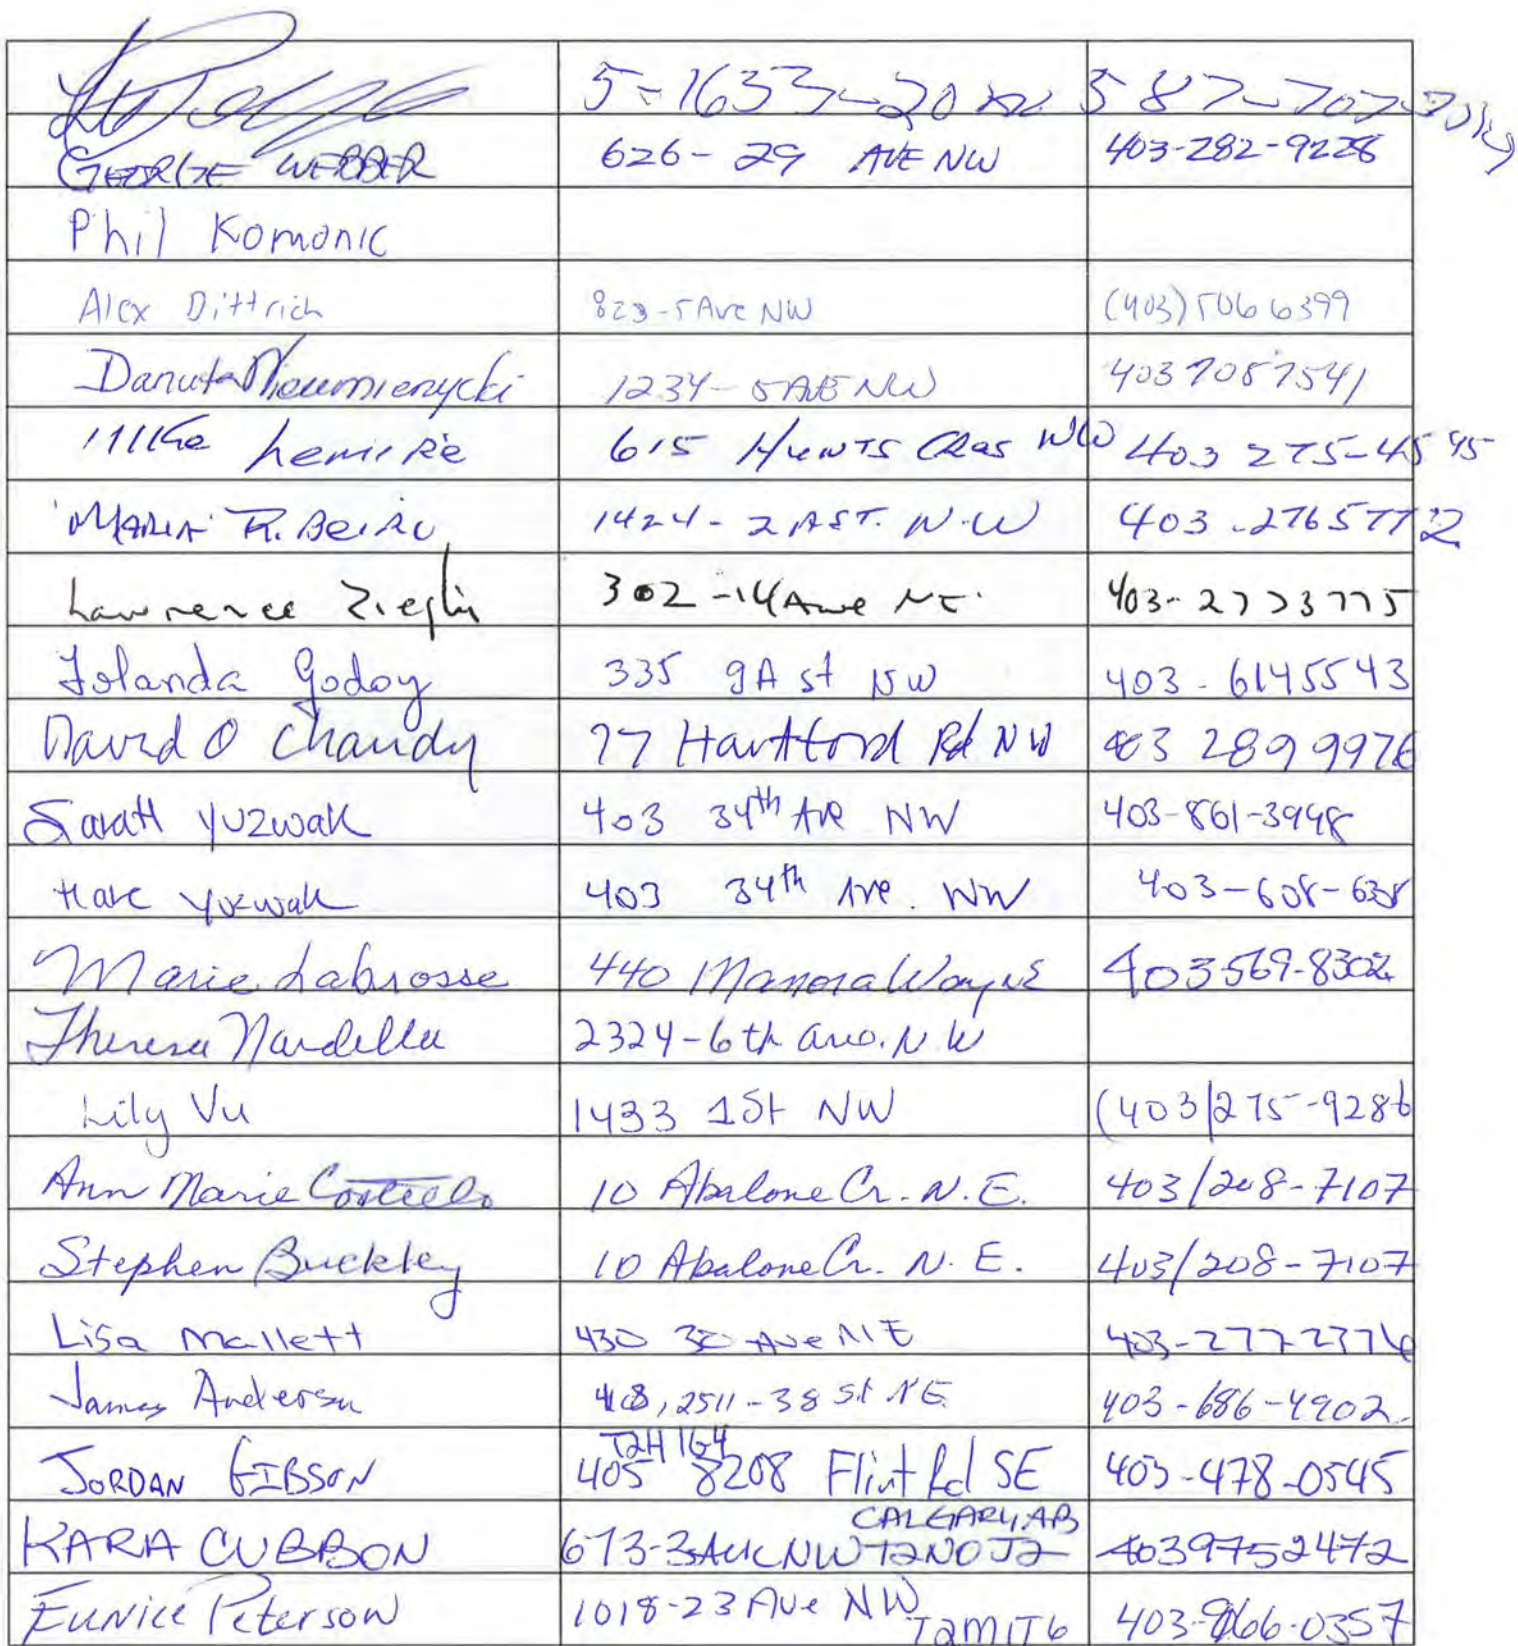 5-1633-20 587-707-
GEORGE WEBBER 626-29 AVE NW 403-282-9228
Phil Komonic
Alex Dittrich 823-5 Ave NW (403) 506 6399
Danuta 1234-5 AVE NW 403 708 7541
Mike Lemire 615 HUNTS NW 403 275-4545
MARIA R. BEIRO 1424-2A ST. N.W 403-2765772
Lawrence 302-14 Ave NE. 403-2773775
Iolanda Godoy 335 9A st NW 403-6145543
David O Chandy 77 Hartford Rd NW 403 289 9976
Sarah Yuzwak 403 34th Ave NW 403-861-3948
Marc Yuzwak 403 34th Ave. NW 403-608-638
Marie Labrosse 440 Manora Way NE 403 569-8302
Theresa Nardella 2324-6th ave. N.W
Lily Vu 1433 1St NW (403)275-9286
Ann Marie Costello 10 Abalone Cr. N.E. 403/208-7107
Stephen Buckley 10 Abalone Cr. N.E. 403/208-7107
Lisa Mallett 430 30 Ave NE 403-277-2376
James Anderson 2511-38 St NE 403-686-4902.
T2H 1G4
JORDAN GIBSON 405 8208 Flint Rd SE 403-478-0545
CALGARY, AB
KARA CUBBON 673-3 Ave NW T2N0J2 4039752472
Eunice Peterson 1018-23 Ave NW T2M1T6 403-866-0357